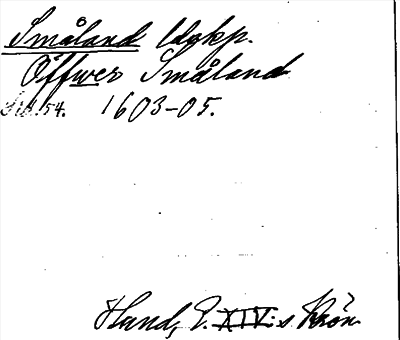 Småland Udgkp.
Öffwer Småland
54. 1603-05.
Hand, E. XIV:s Krön